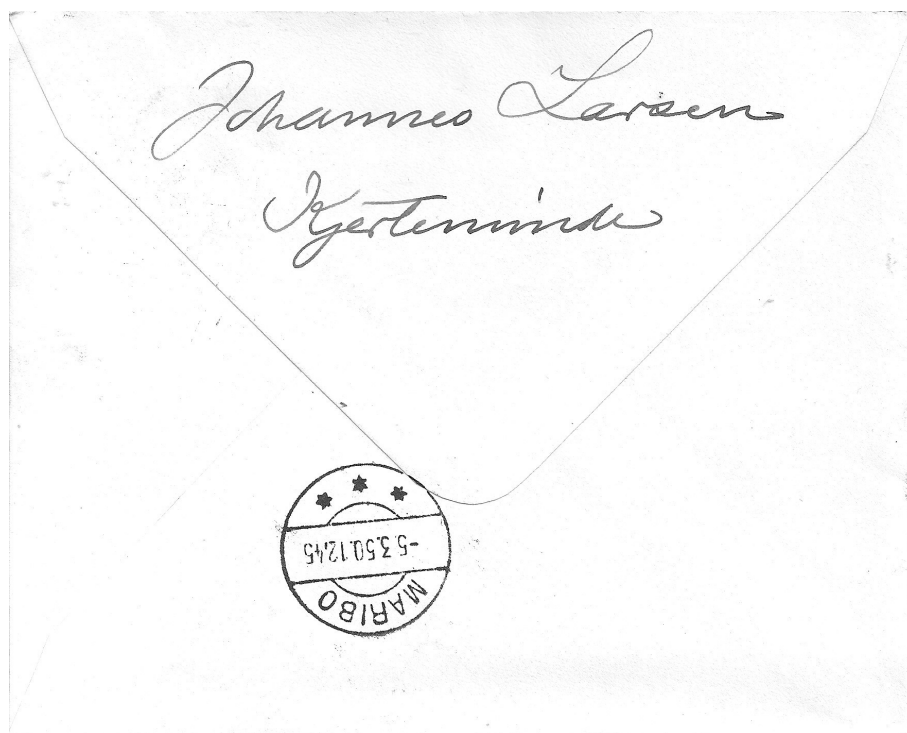 Johannes Larsen
Kjerteminde
MARIBO
-5.3.50.12.45